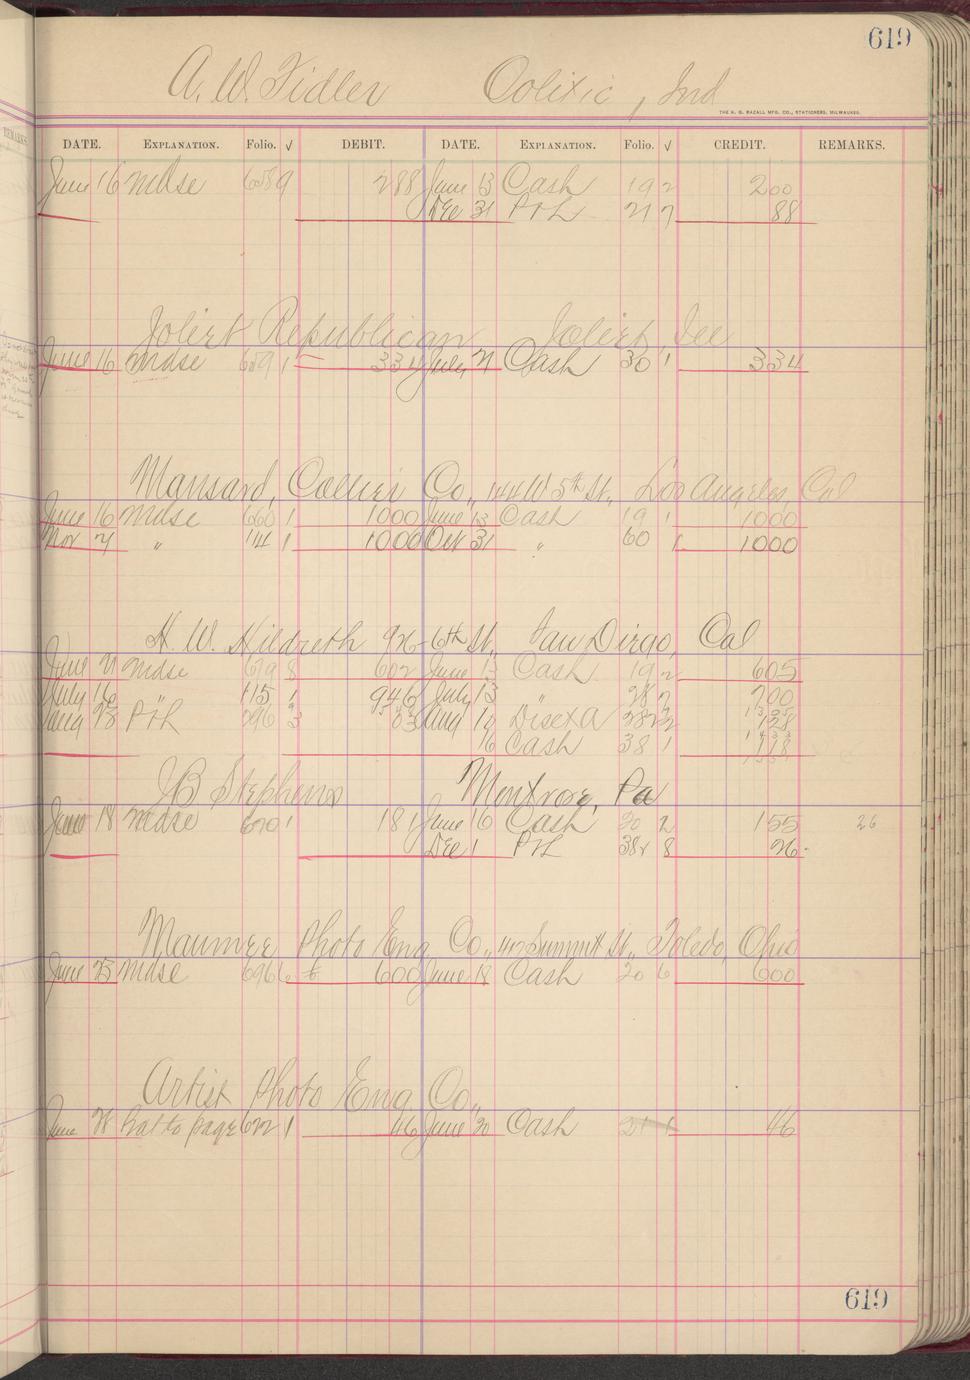 619
A. W. Fidler Oolitic, Ind
THE H. G. RAZALL MFG. CO., STATIONERS, MILWAUKEE.
DATE. EXPLANATION. Folio. √ DEBIT. DATE. EXPLANATION. Folio. √ CREDIT. REMARKS.
June 16 Mdse 658 9 288 June 13 Cash 19 2 200
Dec 31 P+L 217 88
Joliet Republican Joliet, Ill
June 16 Mdse 659 1 334 July 21 Cash 30 1 334
Mansard, Collier Co., 144 W 5th St., Los Angeles, Cal
June 16 Mdse 660 1 1000 June 13 Cash 19 1 1000
Nov 7 " 141 1 1000 Oct 31 " 60 1 1000
H. W. Hildreth 6th St., San Diego, Cal
June 21 Mdse 679 8 602 June 13 Cash 19 2 605
July 16 " 115 1 946 July 13 " 28 2 700
Aug 28 P+L 3 Aug 10 128
16 Cash 38 1 118
JB Stephens Montrose, Pa
June 18 Mdse 670 1 181 June 16 Cash 20 2 155 26
Dec 1 P+L 382 8 26
Maumee Photo Eng Co., 417 Summit St., Toledo, Ohio
June 25 Mdse 696 6 600 June 18 Cash 20 6 600
Artist Photo Eng Co.,
June Bal to page 672 1 46 June 20 Cash 21 1 46
619